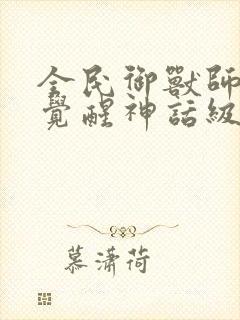 全民御獸師
覺醒神話級
慕瀟荷